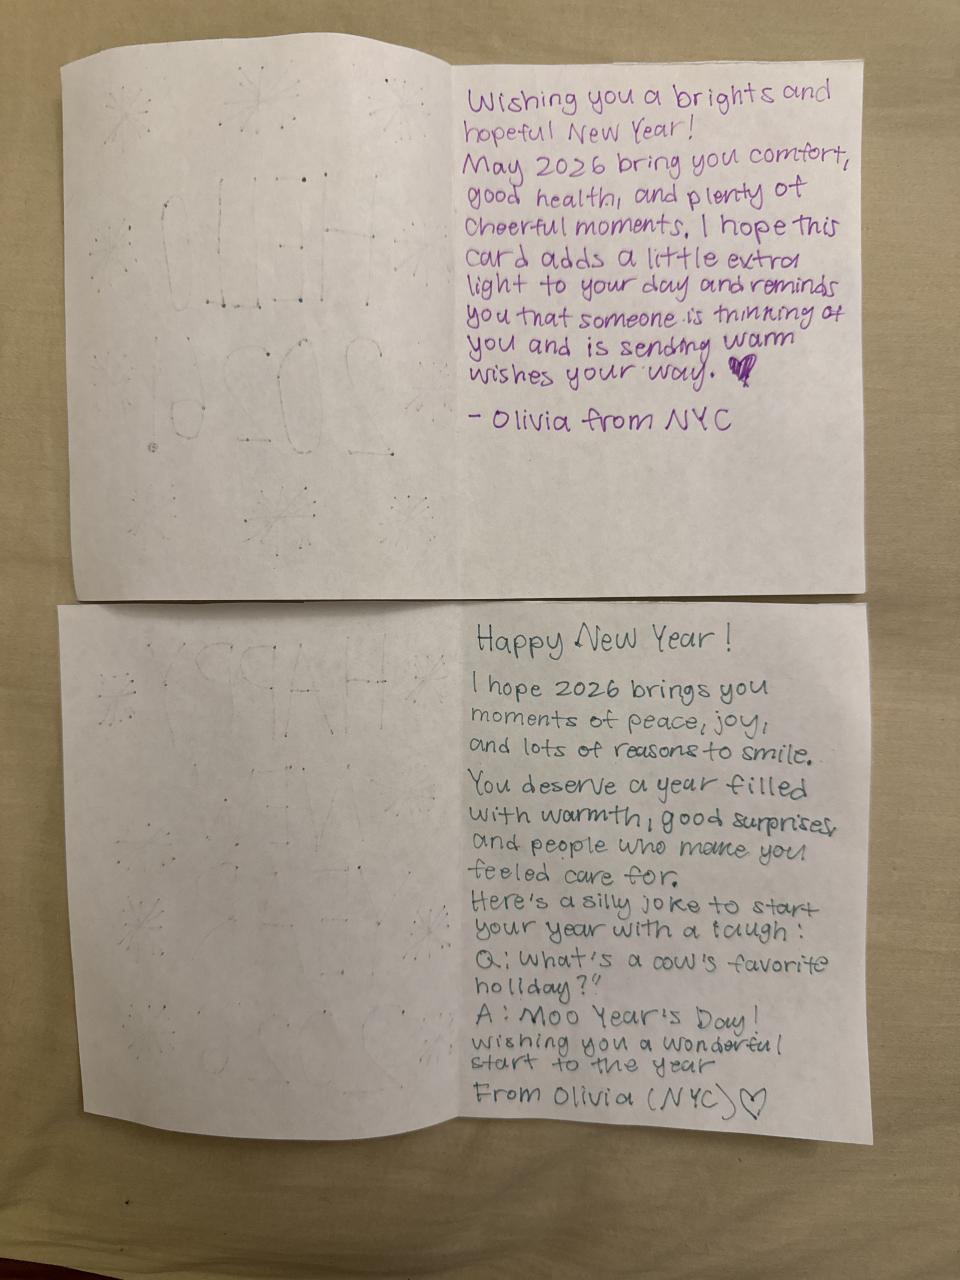 Wishing you a brights and
hopeful New Year!
May 2026 bring you comfort,
good health, and plenty of
cheerful moments. I hope this
card adds a little extra
light to your day and reminds
you that someone is thinking of
you and is sending warm
wishes your way.
- Olivia from NYC
Happy New Year!
I hope 2026 brings you
moments of peace, joy,
and lots of reasons to smile.
You deserve a year filled
with warmth, good surprises,
and people who make you
feeled care for.
Here's a silly joke to start
your year with a laugh:
Q: What's a cow's favorite
holiday?"
A: Moo Year's Day!
wishing you a wonderful
start to the year
From Olivia (NYC)
HELLO
2026
HAPPY
NEW